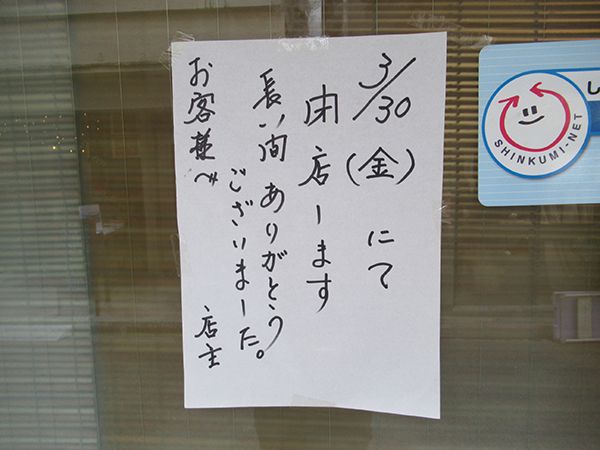 3/30(金)にて
閉店します
長い間ありがとう
ございました。
お客様へ
店主
し
SHINKUMI-NET